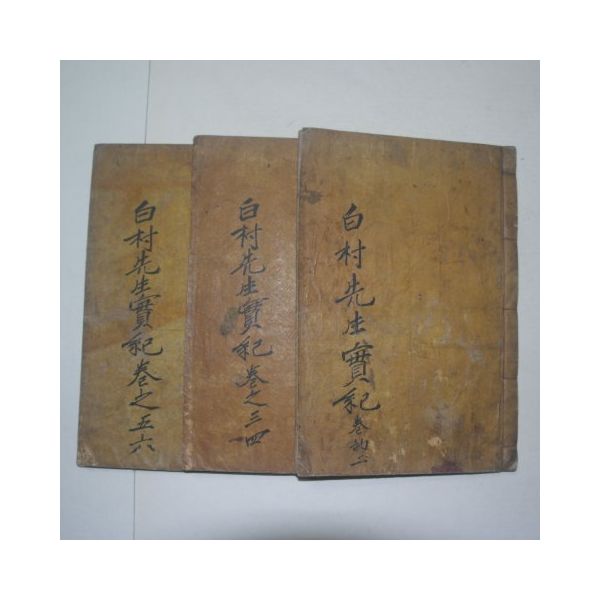 白村先生實紀 卷
白村先生實紀卷之三四
白村先生實紀卷之五六